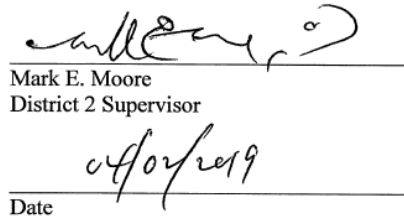 Mark E. Moore
District 2 Supervisor
04/02/2019
Date